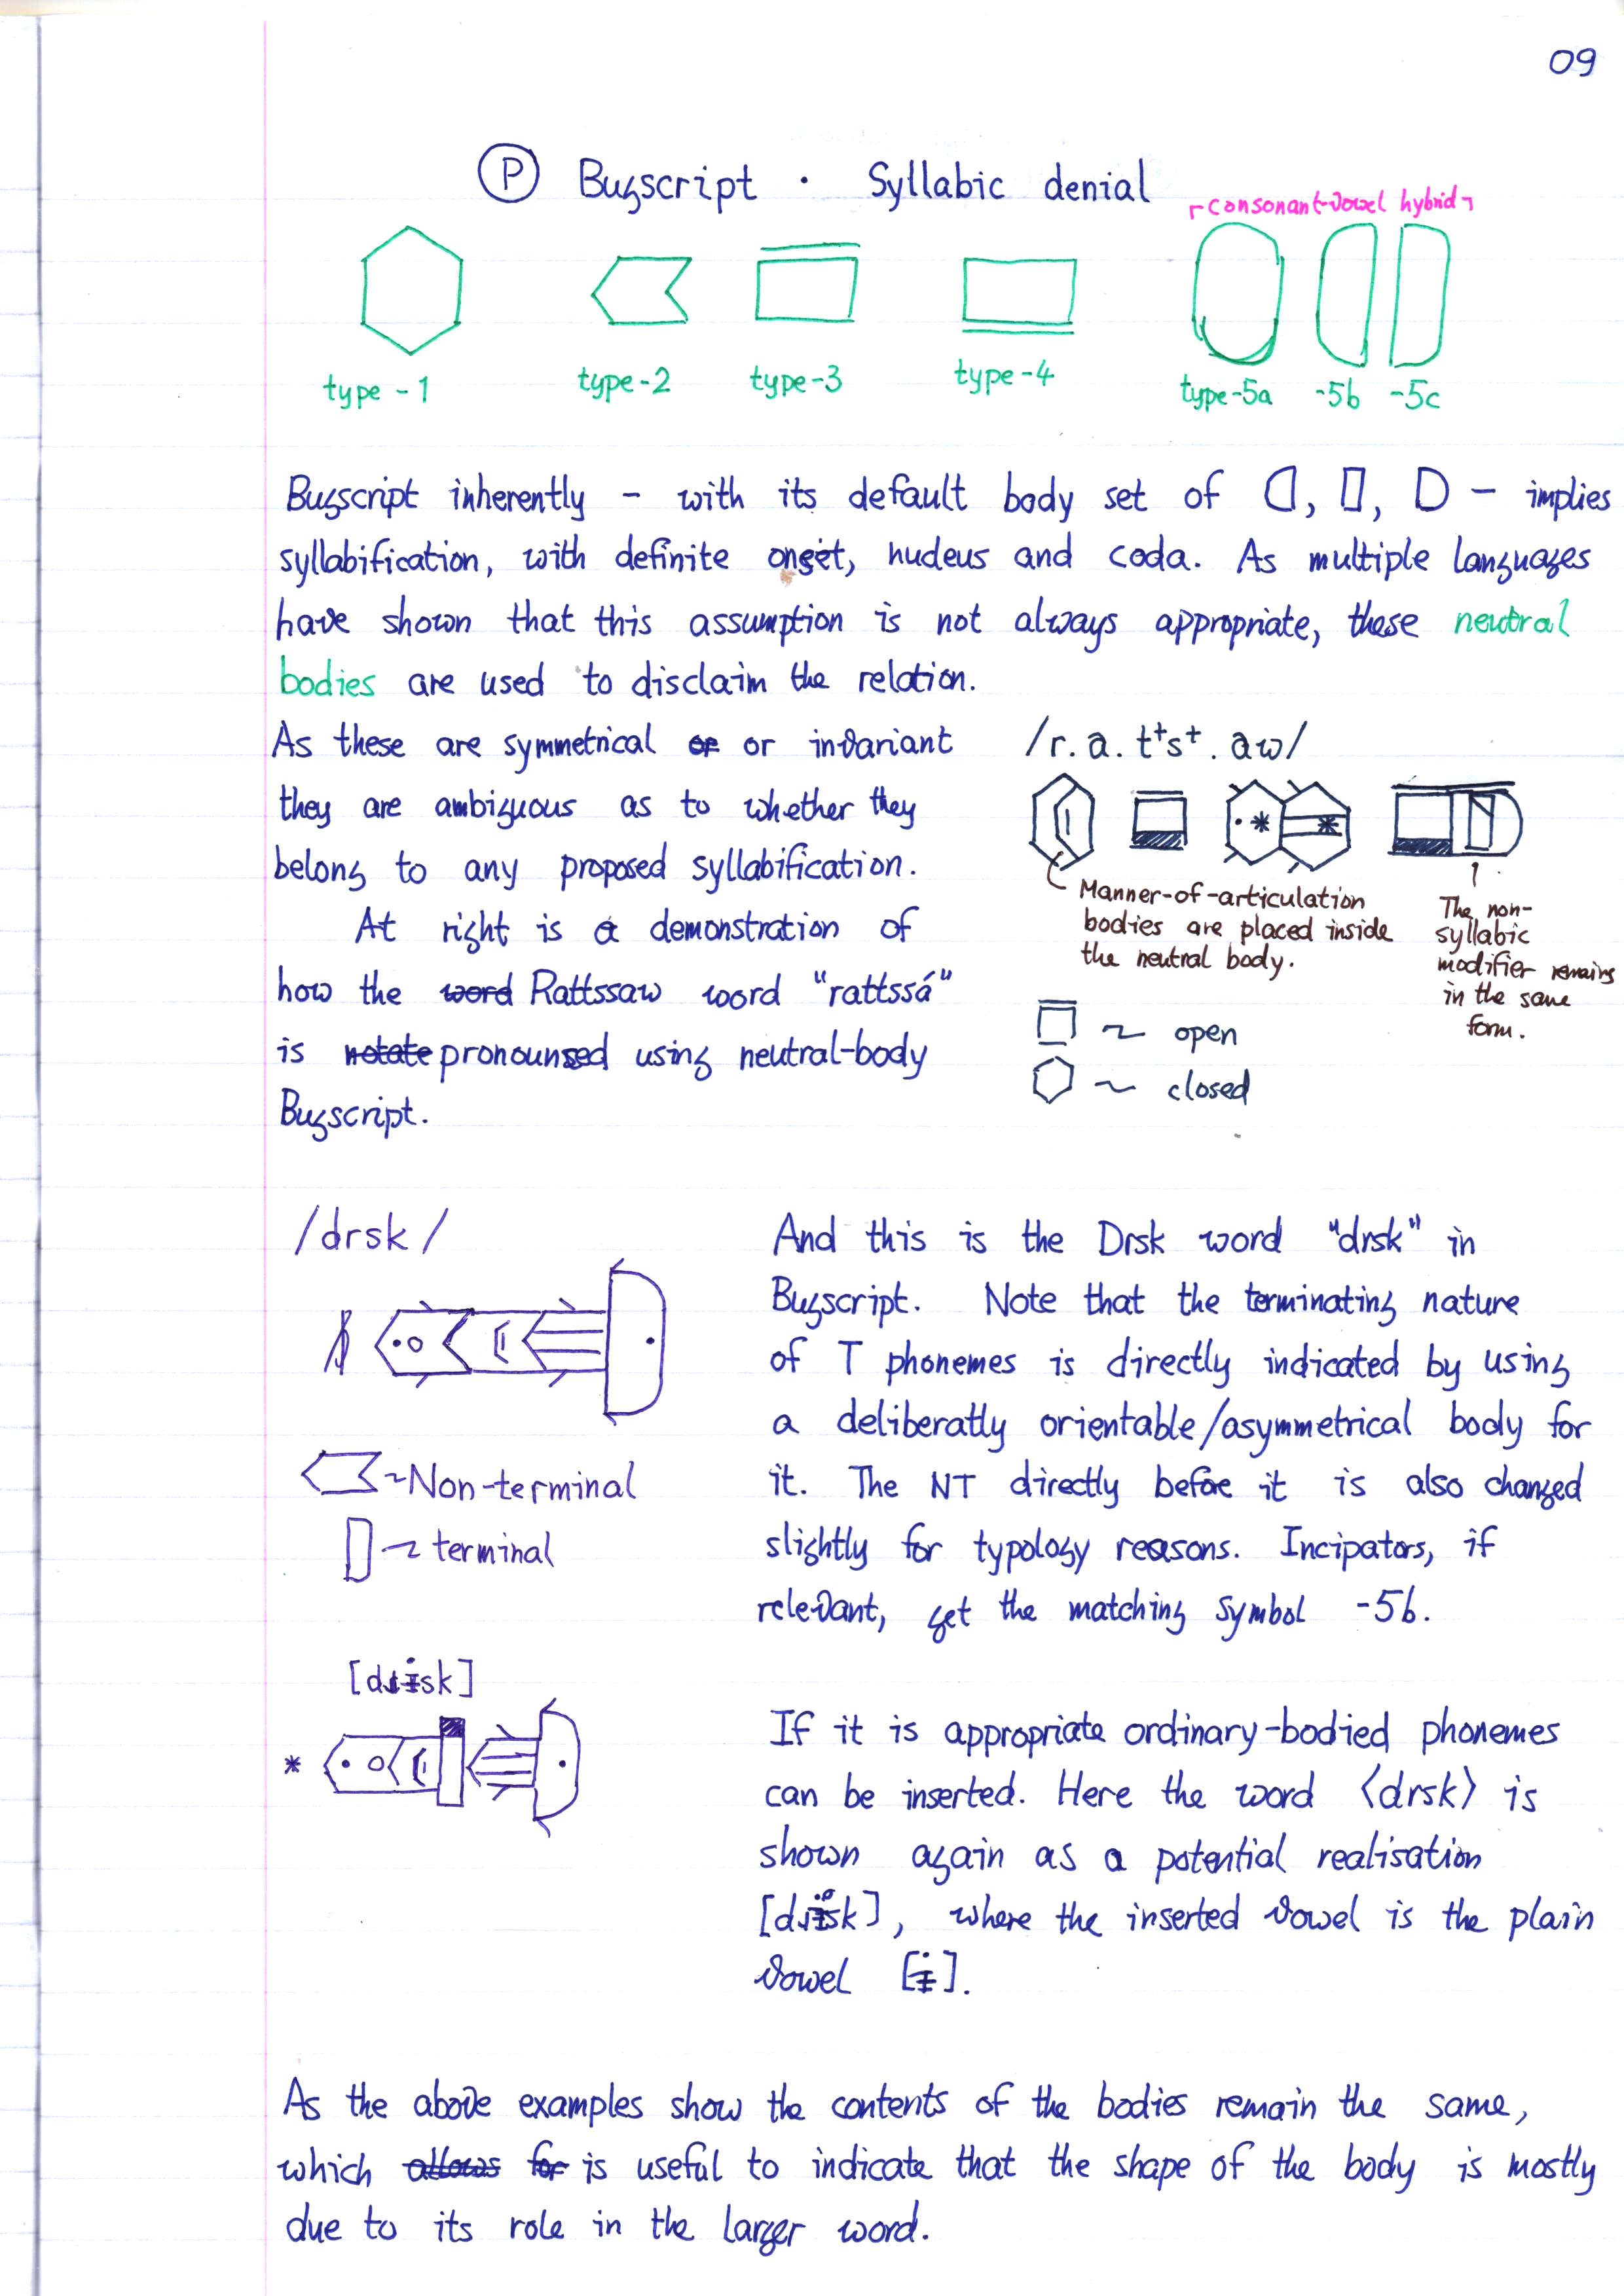 09
P Bugscript · Syllabic denial
consonant-vowel hybrid
type-1 type-2 type-3 type-4 type-5a -5b -5c
Bugscript inherently – with its default body set of , , D – implies
syllabification, with definite onset, nucleus and coda. As multiple languages
have shown that this assumption is not always appropriate, these neutral
bodies are used to disclaim the relation.
As these are symmetrical or or invariant
they are ambiguous as to whether they
belong to any proposed syllabification.
At right is a demonstration of
how the word Rattssaw word "rattssá"
is notate pronounsed using neutral-body
Bugscript.
/r.a.t⁺s⁺.aw/
Manner-of-articulation
bodies are placed inside
the neutral body.
The non-
syllabic
modifier remains
in the same
form.
~ open
~ closed
/drsk/
~Non-terminal
~ terminal
And this is the Drsk word "drsk" in
Bugscript. Note that the terminating nature
of T phonemes is directly indicated by using
a deliberatly orientable/asymmetrical body for
it. The NT directly before it is also changed
slightly for typology reasons. Incipators, if
relevant, get the matching symbol -5b.
*
If it is appropriate ordinary-bodied phonemes
can be inserted. Here the word ⟨drsk⟩ is
shown again as a potential realisation
, where the inserted vowel is the plain
vowel [ɨ].
As the above examples show the contents of the bodies remain the same,
which allows for is useful to indicate that the shape of the body is mostly
due to its role in the larger word.